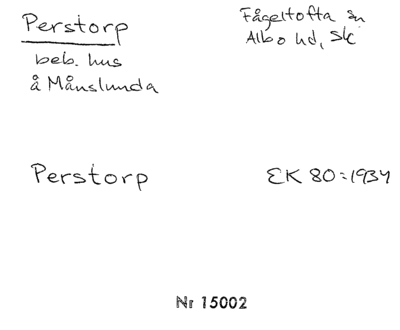 Perstorp
Fågeltofta sn
Albo hd, Sk
beb. hus
å Månslunda
Perstorp
EK 80:1934
Nr 15002